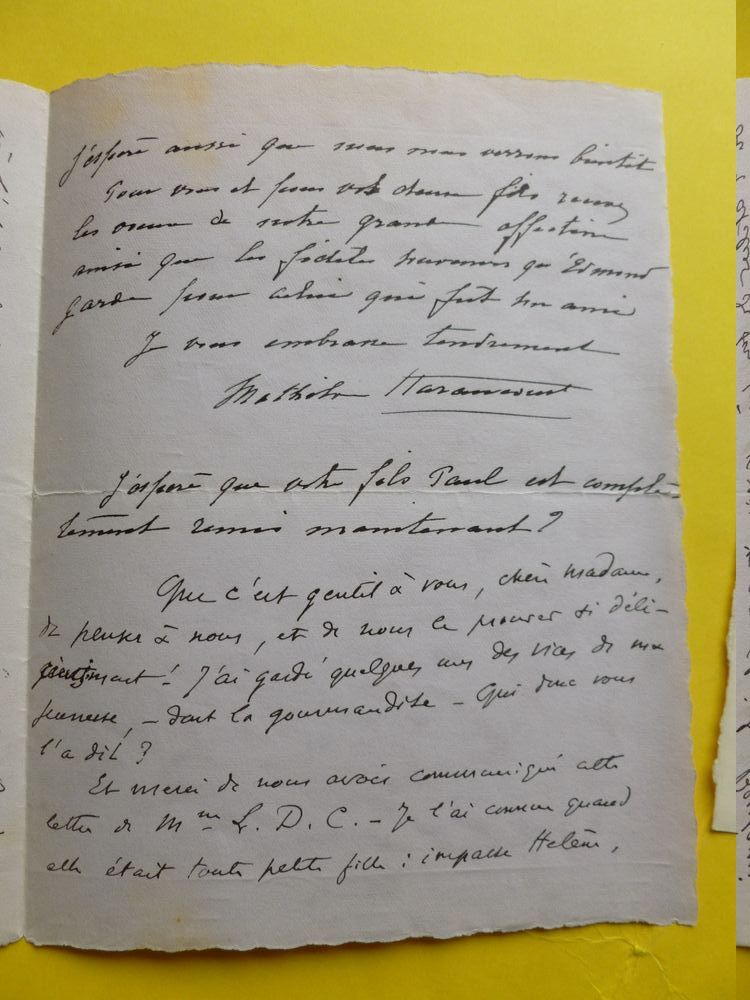 J'espère aussi que nous nous verrons bientôt
Pour vous et pour vos deux fils recevez
les vœux de notre grande affection
ainsi que les fidèles souvenirs qu'Edmond
garde pour celui qui fut son ami
Je vous embrasse tendrement
Mathilde Haraucourt
J'espère que votre fils Paul est complè-
tement remis maintenant ?
Que c'est gentil à vous, chère madame,
de penser à nous, et de nous le prouver si déli-
! J'ai gardé quelques uns des vices de ma
jeunesse, – dont la gourmandise – Qui donc vous
l'a dit ?
Et merci de nous avoir communiqué cette
lettre de Mme L. D. C. – Je l'ai connue quand
elle était toute petite fille : impasse Hélène,